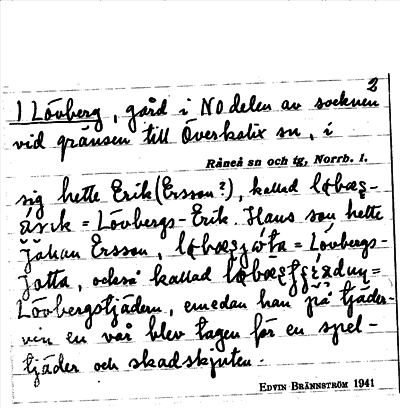 2
1 Lövberg, gård i NO delen av socknen
vid gränsen till Överkalix sn, i
Råneå sn och tg, Norrb. l.
sig hette Erik (Ersson?), kallad
= Lövbergs-Erik. Hans son hette
Johan Ersson, = Lövbergs-
Jotta, också kallad =
Lövbergstjädern, emedan han på tjäder-
vin en vår blev tagen för en spel-
tjäder och skadskjuten.
EDVIN BRÄNNSTRÖM 1941